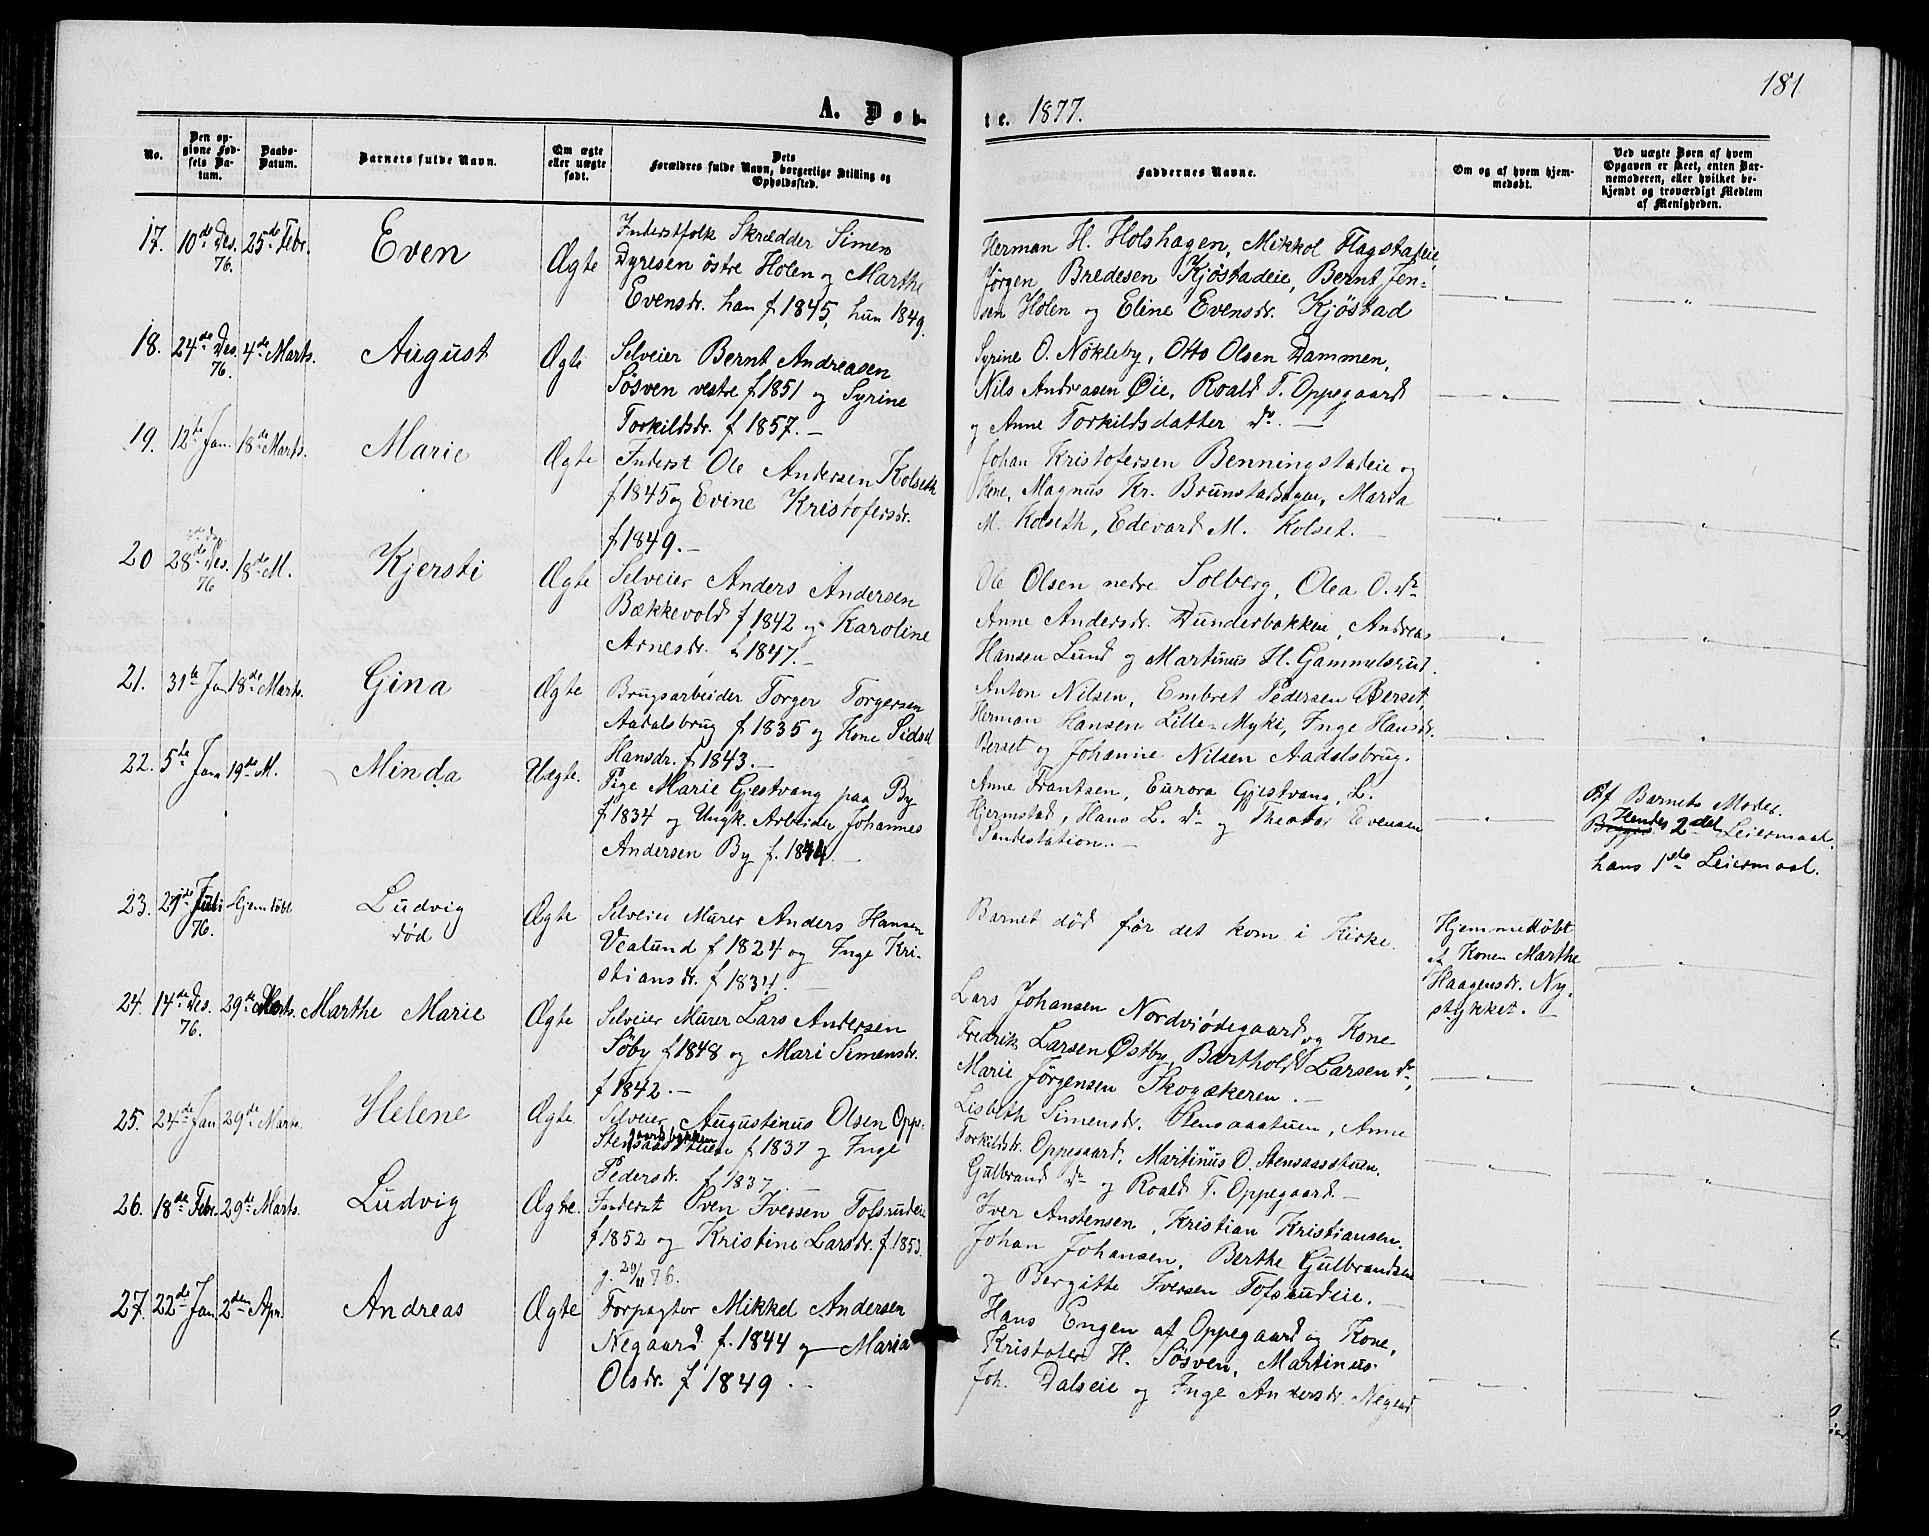 181
A. Døb-
te. 1877.
No.
Den op-
givne Fød-
sels Da-
tum.
Daabs-
Datum.
Barnets fulde Navn.
Om ægte
eller uægte
født.
Dets
Forældres fulde Navn, borgerlige Stilling og
Opholdssted.
Faddernes Navne.
Om og af hvem hjem-
medøbt.
Ved uægte Børn af hvem
Opgaven er skeet, enten Bar-
nemoderen, eller hvilket be-
kjendt og troværdigt Medlem
af Menigheden.
17. 10de Des. 76. 25de Febr. Even Ægte
Inderstfolk Skrædder Simen
Dyresen østre Holen og Marthe
Evensdr. han f 1845, hun 1849.
Herman H. Holshagen, Mikkol Flagstadeie,
Jørgen Bredesen Kjöstadeie, Bernt Jen-
sen Holen og Eline Evensdr. Kjöstad
18. 24de Des. 76. 4de Marts. August Ægte
Selveier Bernt Andreasen
Søsven vestre f 1851 og Syrine
Torkildsdr. f 1857.
Syrine O. Nökleby, Otto Olsen Dammen,
Nils Andreasen Øie, Roald T. Oppegaard
og Anne Torkildsdatter do.
19. 12te Jan. 18de Marts. Marie Ægte
Inderst Ole Andersen Kolseth
f 1845 og Evine Kristofersdr.
f 1849.
Johan Kristofersen Benningstadeie og
Kone, Magnus Kr. Brunstadhagen, Maria
M. Kolseth, Edevard M. Kolset.
20 28de Des. 76 18de M. Kjersti Ægte
Selveier Anders Andersen
Bækkevold f 1842 og Karoline
Arnesdr. f 1847.
Ole Olsen nedre Solberg, Olea O. do
Anne Andersdr. Dunderbakken, Andreas
Hansen Lund og Martinus H. Gammelsrud.
21. 31te Jan 18de Marts. Gina Ægte
Brugsarbeider Torger Torgersen
Aadalsbrug f 1835 og Kone Sidsel
Hansdr. f 1843.
Anton Nilsen, Embret Pedersen Berset,
Herman Hansen Lille-Myki, Inge Hansdr.
Berset og Johanne Nilsen Aadalsbrug.
22. 5te Jan 19de M. Minda Uægte.
Pige Marie Gjestvang paa By
f 1834 og Ungk. Arbeider Johannes
Andersen By f. 1844.
Anne Frantsen, Eurora Gjestvang, L.
Hjermstad, Hans L. do og Theodor Evensen
Sandestation.
Af Barnets Moder.
Hendes 2det Leiermaal.
hans 1ste Leiermaal.
23. 21de Juli 76. Hjemdöbt Ludvig
död
Ægte
Selveier Murer Anders Hansen
Vealund f 1824 og Inge Kri-
stiansdr. f 1834.
Barnet död för det kom i Kirke.
Hjemmedöbt
af Konen Marthe
Haagensdr. Ny-
stykket.
24. 14de Des. 76. 29de Marts. Marthe Marie Ægte
Selveier Murer Lars Andersen
Söby f 1848 og Mari Simensdr.
f 1842.
Lars Johansen Nordviödegaard og Kone
Fredrik Larsen Østby, Barthold Larsen do,
Marie Jörgensen Skogakeren.
25. 24de Jan 29de Marts. Helene Ægte
Selveier Augustinus Olsen Opp-
gaardbakken
Stensaasstuen f 1837 og Inge
Pedersdr. f 1837
Lisbeth Simensdr. Stensaastuen, Anne
Torkildsdr. Oppegaard, Martinus O. Stensaasstuen,
Gulbrand do og Roald T. Oppegaard.
26. 18de Febr. 29de Marts. Ludvig Ægte.
Inderst Sven Iversen Tofsrudeie
f. 1852 og Kristine Larsdr. f. 1853.
g. 29/11 76.
Iver Anstensen, Kristian Kristiansen,
Johan Johansen, Berthe Gulbrandsen
og Bergitte Iversen Tofsrudeie.
27. 22de Jan 2den Apr. Andreas Ægte
Forpagter Mikkel Andersen
Negaard f. 1844 og Maria
Olsdr. f 1849.
Hans Engen af Oppegaard og Kone,
Kristofer H. Sösven, Martinus
Joh. Dalseie og Inge Andersdr. Negaard